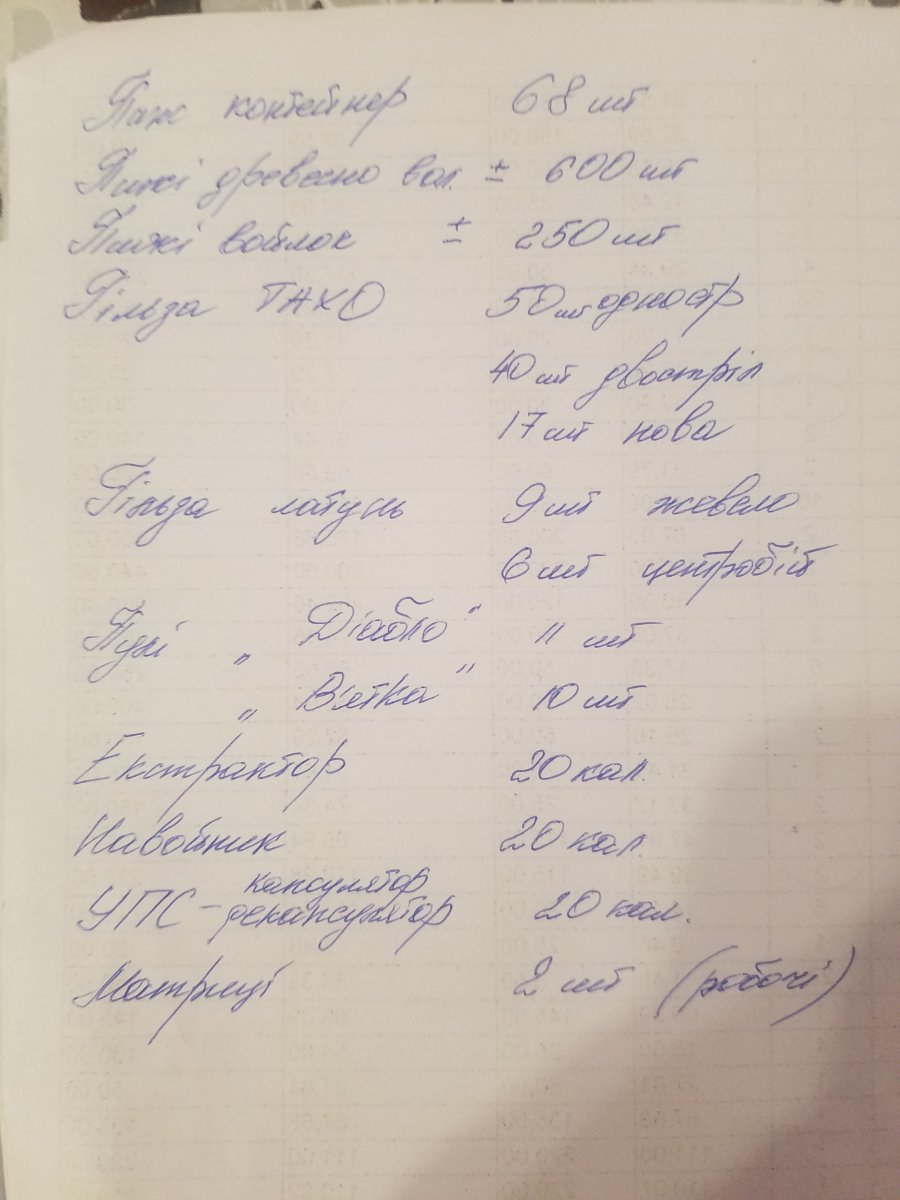 Пиж контейнер 68 шт
Пижі древесно вол. ± 600 шт
Пижі войлок ± 250 шт
Гільза ТАХО 50 шт одностр
40 шт двостріл
17 шт нова
Гільза латунь 9 шт жевело
6 шт центробій
Пулі „Діабло" 11 шт
„Вятка" 10 шт
Екстрактор 20 кал.
Навойник 20 кал.
УПС - капсулятор
декапсулятор 20 кал.
Матриці 2 шт (робочі)